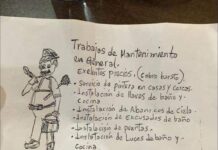 Trabajos de Mantenimiento
en General.
Exelentes precios. (Cobro barato)
- Servicio de pintura en casas y cercas.
- Instalación de llaves de baño y
Cocina
- Instalación de Abanicos de Cielo
- Instalación de Escusados de baño
- Instalación de puertas.
- Instalación de Luces de baño y
Cocina